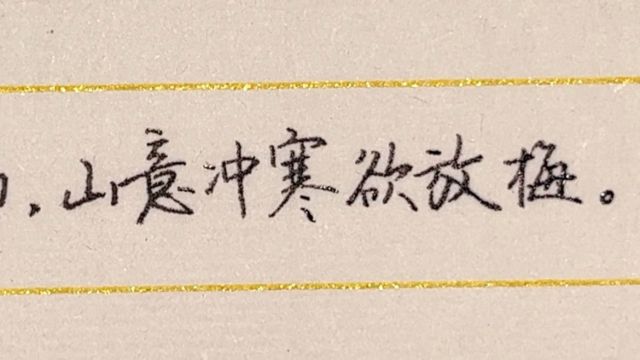 ，山意冲寒欲放梅。